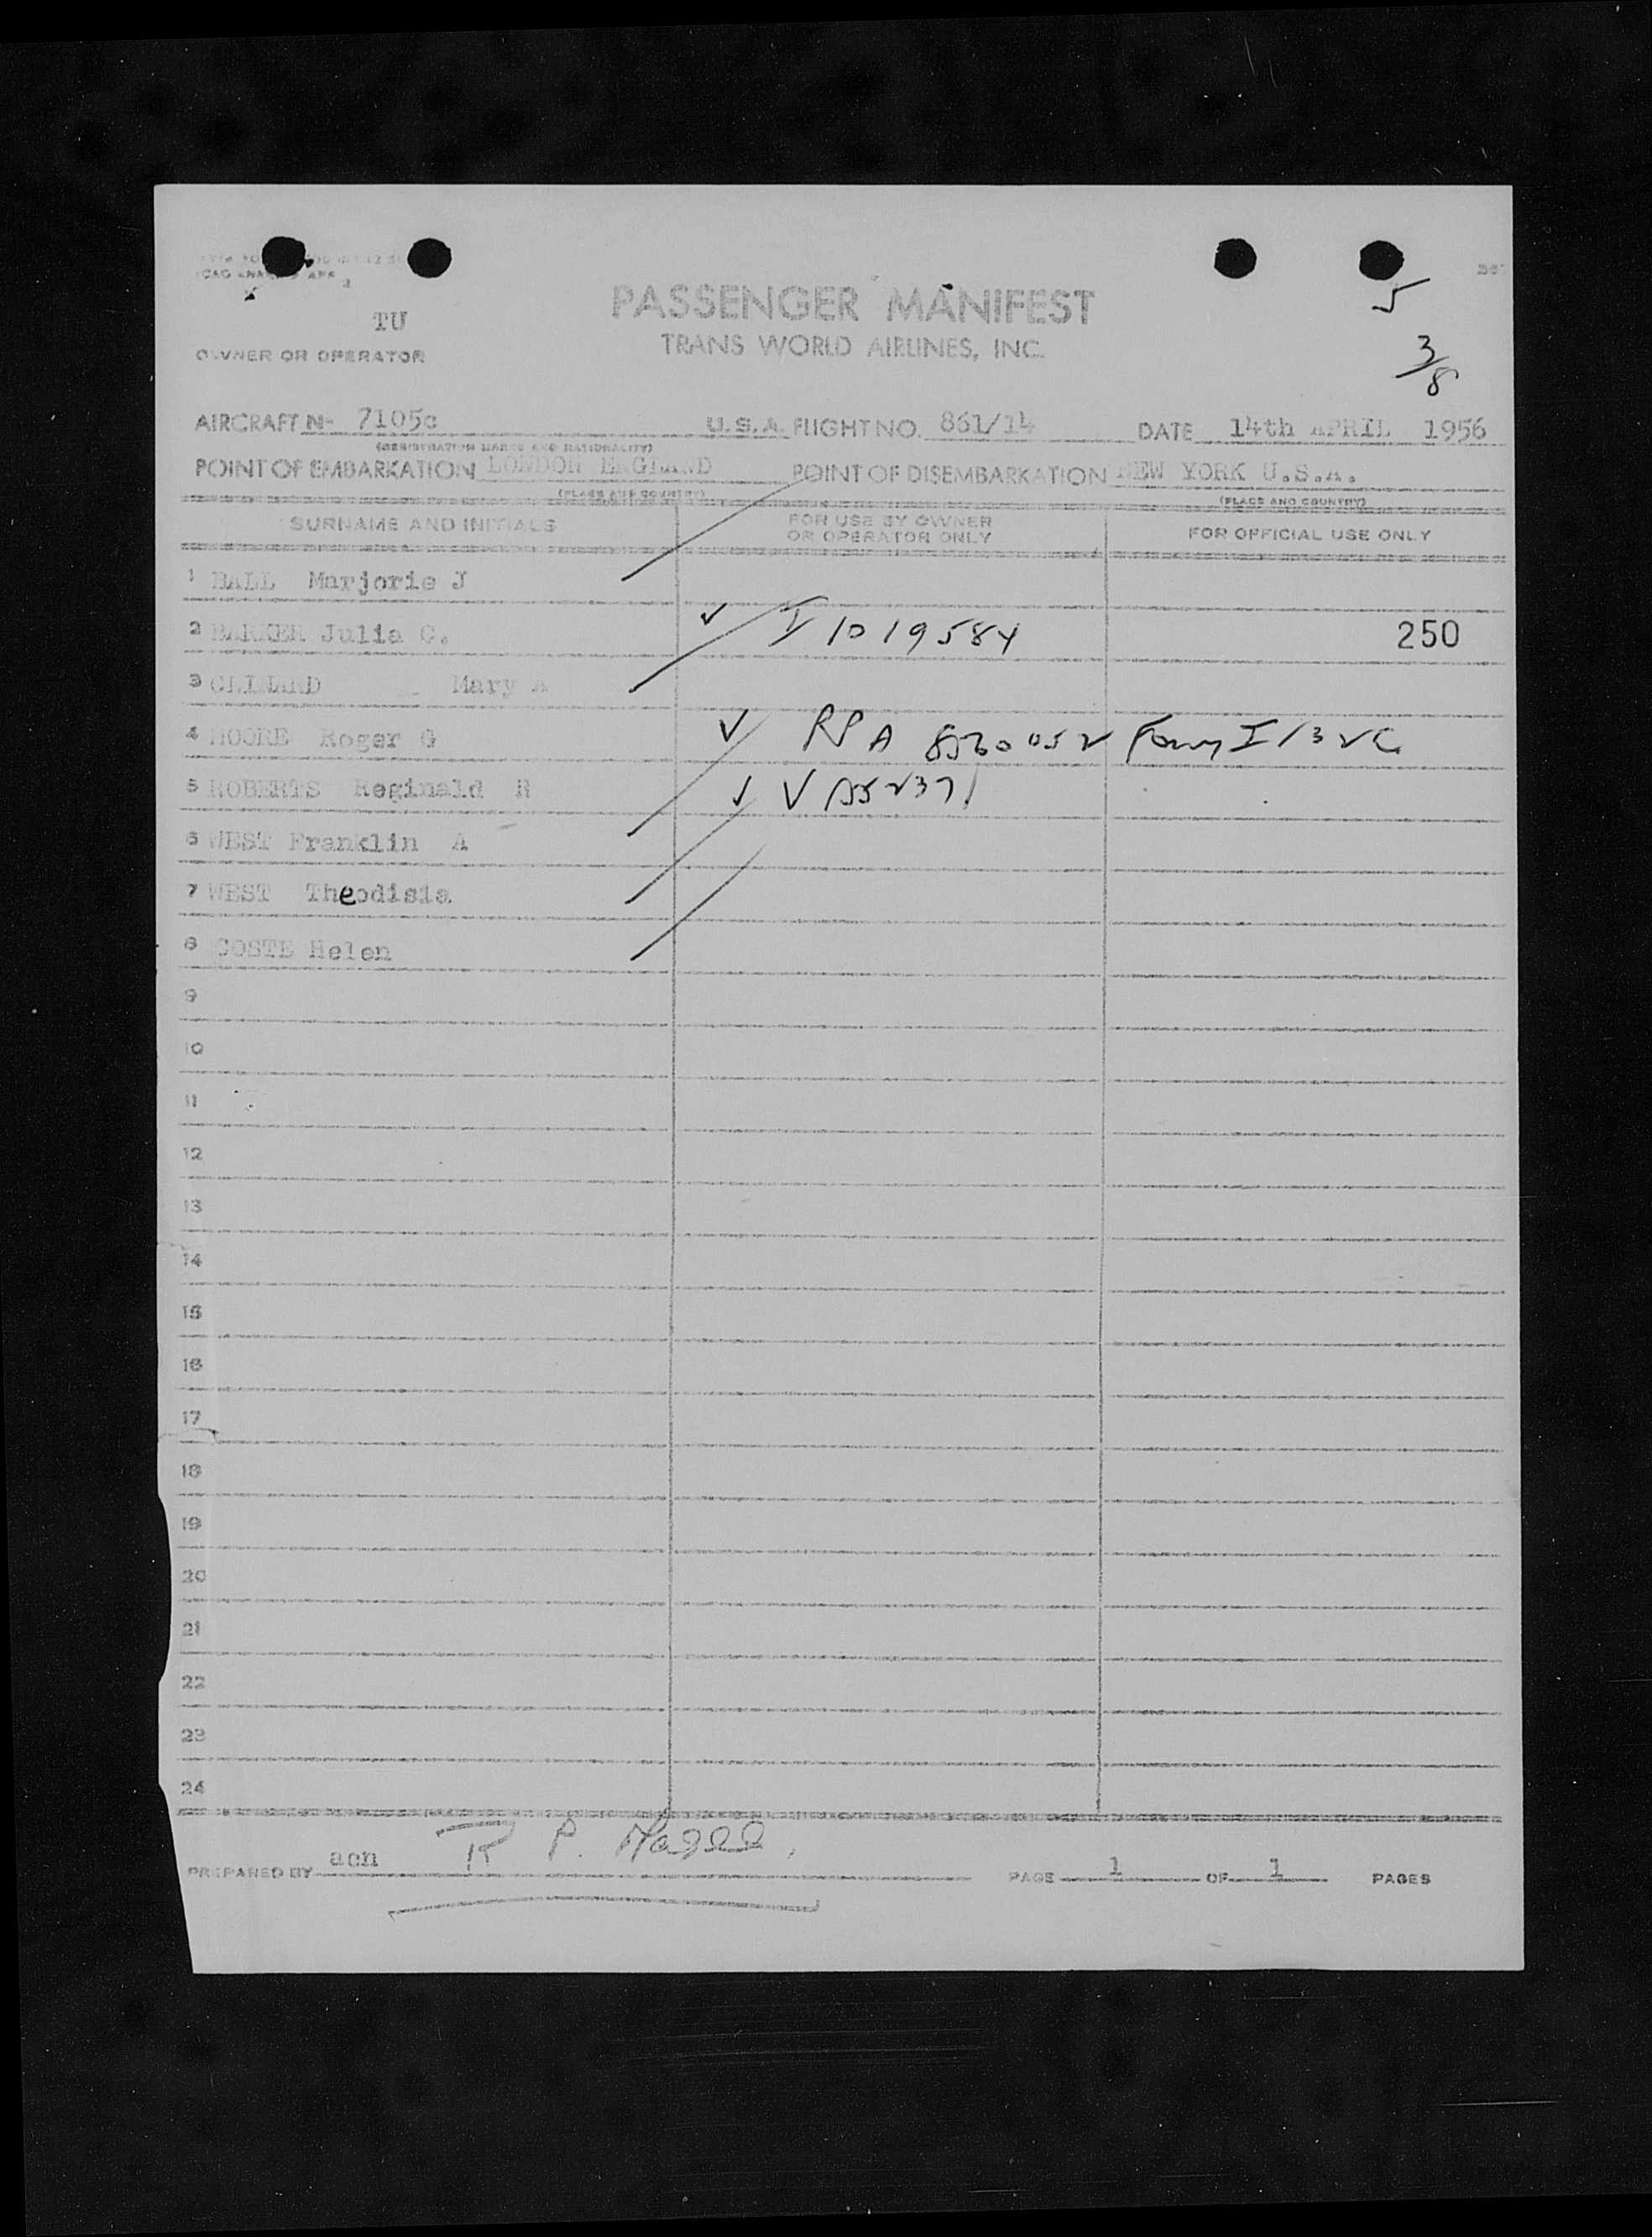 TU
PASSENGER MANIFEST
OWNER OR OPERATOR
TRANS WORLD AIRLINES, INC.
5
3/8
AIRCRAFT N- 7105c U.S.A. FLIGHT NO. 861/14 DATE 14th APRIL 1956
(REGISTRATION MARKS AND NATIONALITY)
POINT OF EMBARKATION LONDON ENGLAND POINT OF DISEMBARKATION NEW YORK U.S.A.
(PLACE AND COUNTRY) (PLACE AND COUNTRY)
SURNAME AND INITIALS FOR USE BY OWNER OR OPERATOR ONLY FOR OFFICIAL USE ONLY
1 BALL Marjorie J
2 BARKER Julia C. ✓ I 1019584 250
3 Mary A
4 MOORE Roger G ✓ RP A Form I 132
5 ROBERTS Reginald H ✓ V
6 WEST Franklin A
7 WEST Theodisia
8 COSTE Helen
9
10
11
12
13
14
15
16
17
18
19
20
21
22
23
24
PREPARED BY acn R P. Magee PAGE 1 OF 1 PAGES